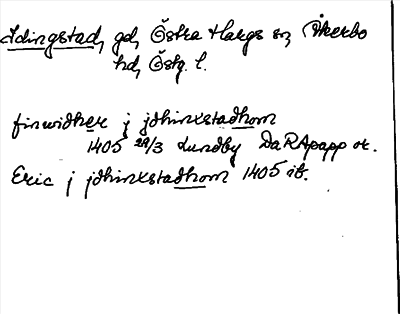 Idingstad, gd, Östra Hargs sn, Åkerbo
hd, Östg. l.
finwidher j jdhinxstadhom
1405 29/3 Lundby DaRApapp or.
Eric j jdhinxstadhom 1405 ib.